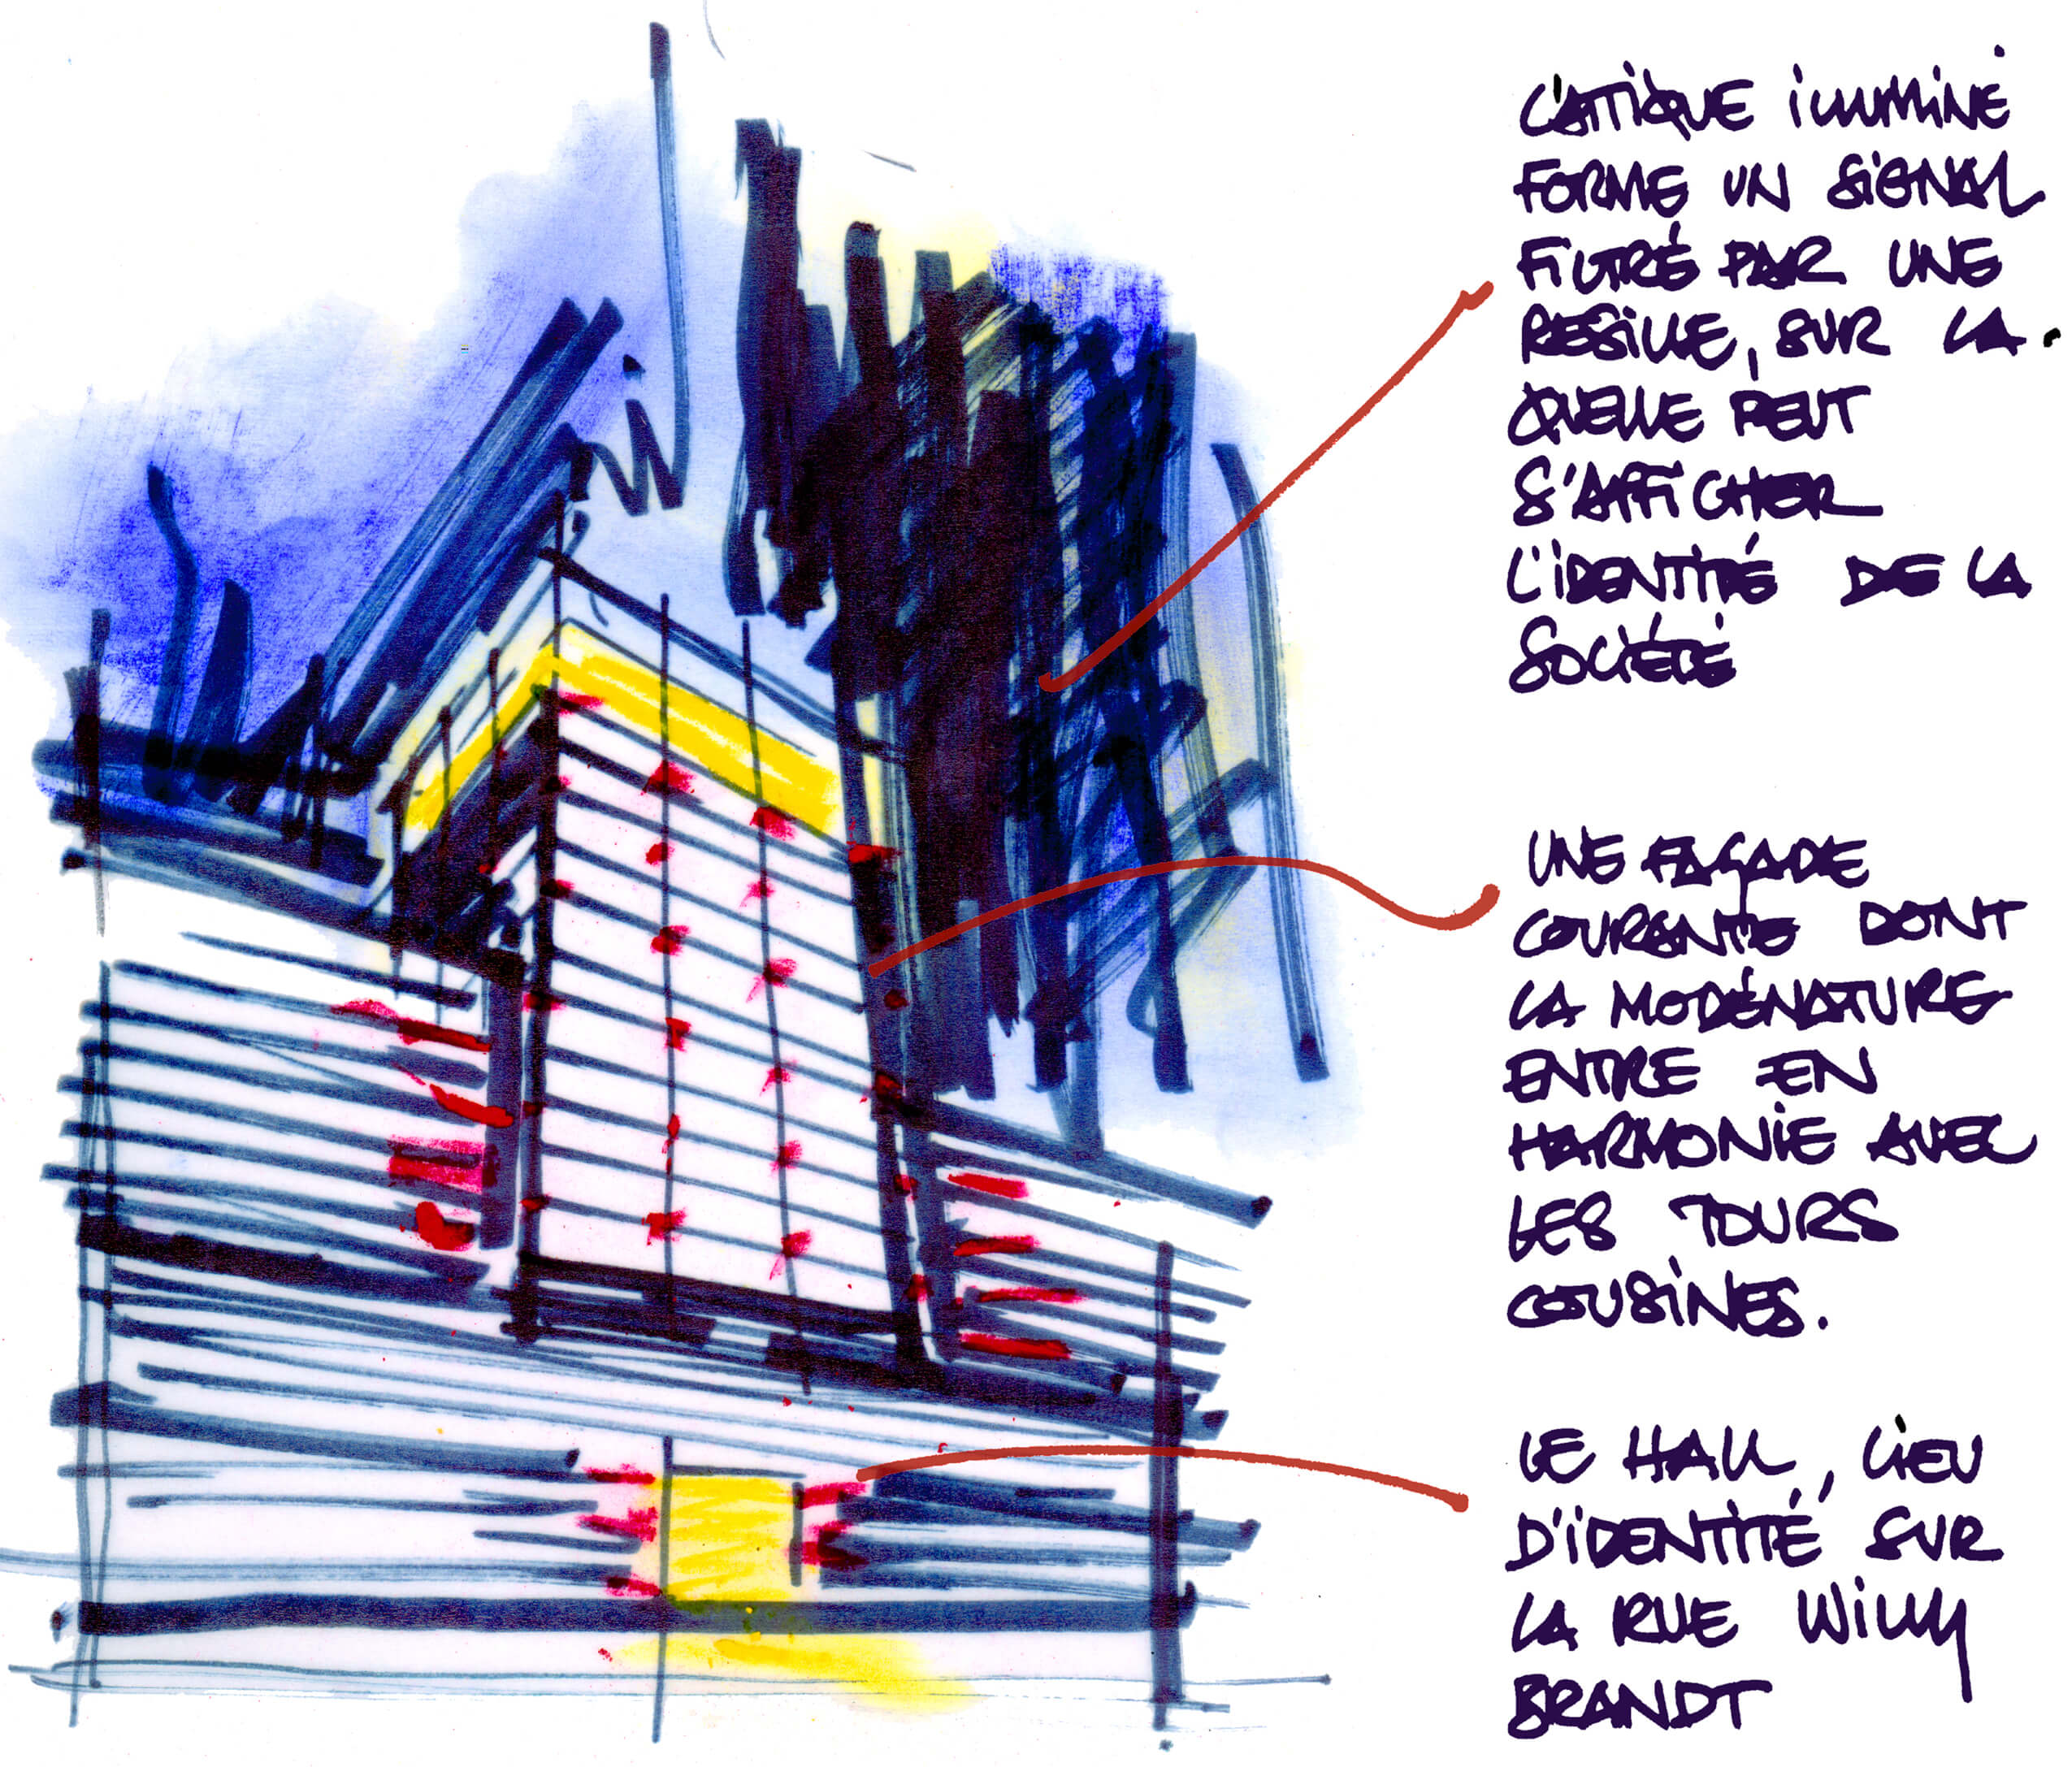 L'ATTIQUE ILLUMINÉ
FORME UN SIGNAL
FILTRÉ PAR UNE
RESILLE, SUR LA
QUELLE PEUT
S'AFFICHER
L'IDENTITÉ DE LA
SOCIÉTÉ
UNE FAÇADE
COURANTE DONT
LA MODÉNATURE
ENTRE EN
HARMONIE AVEC
LES TOURS
COUSINES.
LE HALL, LIEU
D'IDENTITÉ SUR
LA RUE WILLY
BRANDT